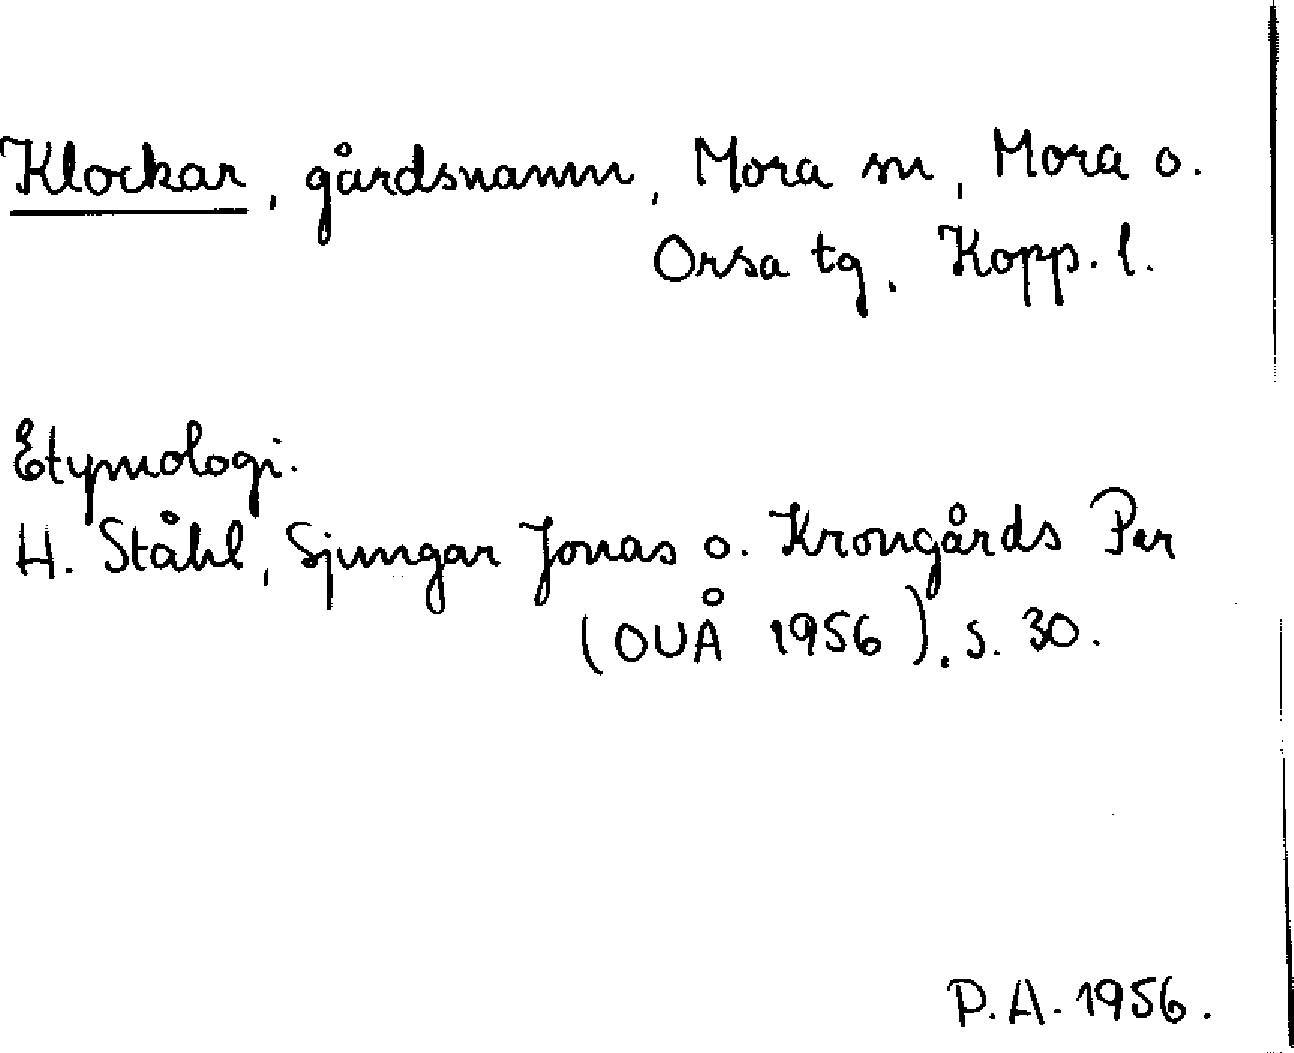 Klockar, gårdsnamn, Mora sn, Mora o.
Orsa tg, Kopp. l.
Etymologi.
H. Ståhl, Sjungar Jonas o. Krongårds Per
(OUÅ 1956), s. 30.
P.A. 1956.